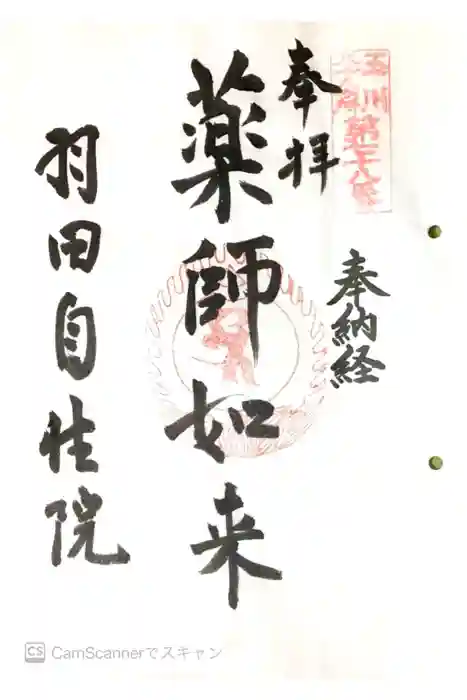 玉川
第
奉拝
奉納経
薬師如来
羽田自性院
CS CamScannerでスキャン